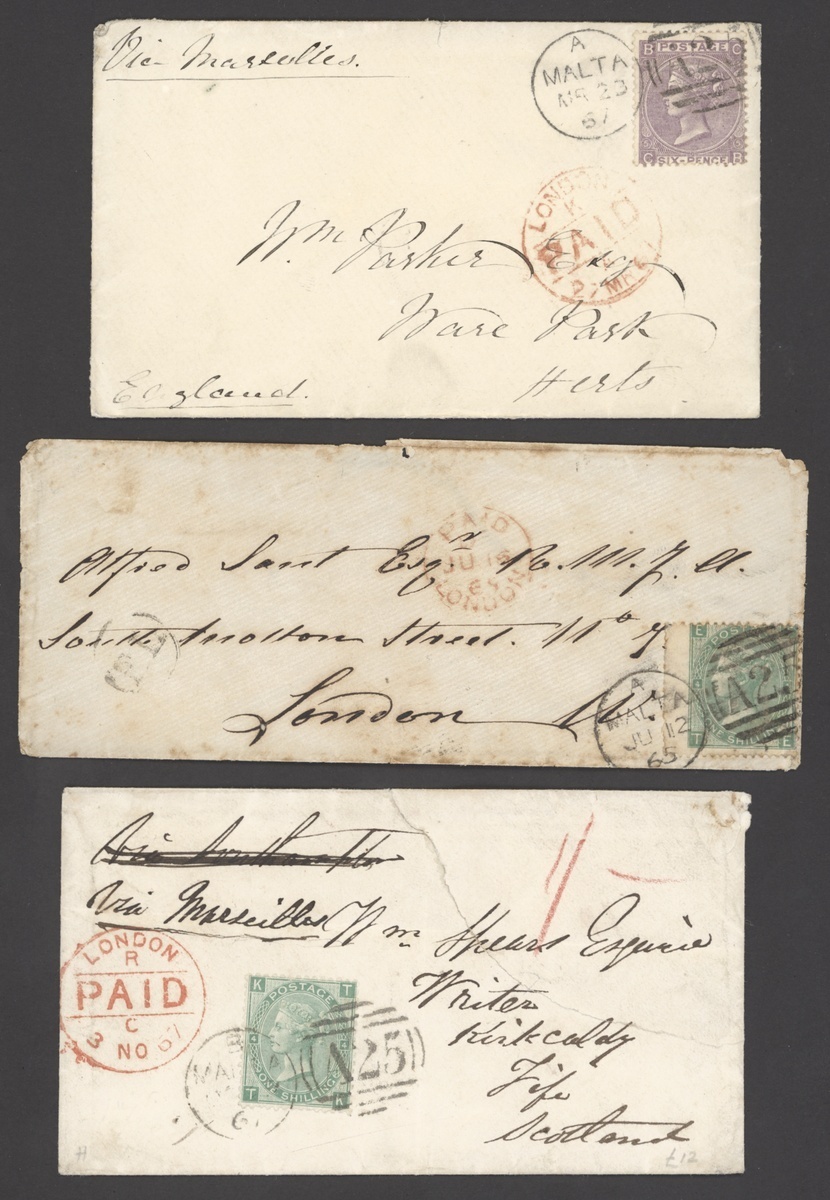 Via Marseilles.
A
MALTA
MR 23
67
B POSTAGE C
C SIX-PENCE B
LONDON
K
PAID
27 MR
Wm Parker Esq
Ware Park
Herts
England.
PAID
JU 16
65
LONDON
Alfred Sant Esqr R. M. F. A.
South Molton Street. No 7.
London W.
A
MALTA
JU 12
65
E POSTAGE
A25
T ONE SHILLING E
Via Southampton
Via Marseilles
1/-
Wm Spears Esquire
Writer
Kirkcaldy
Fife
Scotland
LONDON
R
PAID
C
3 NO 67
K POSTAGE T
4 4
T ONE SHILLING K
B
MALTA
67
A25
H
£12